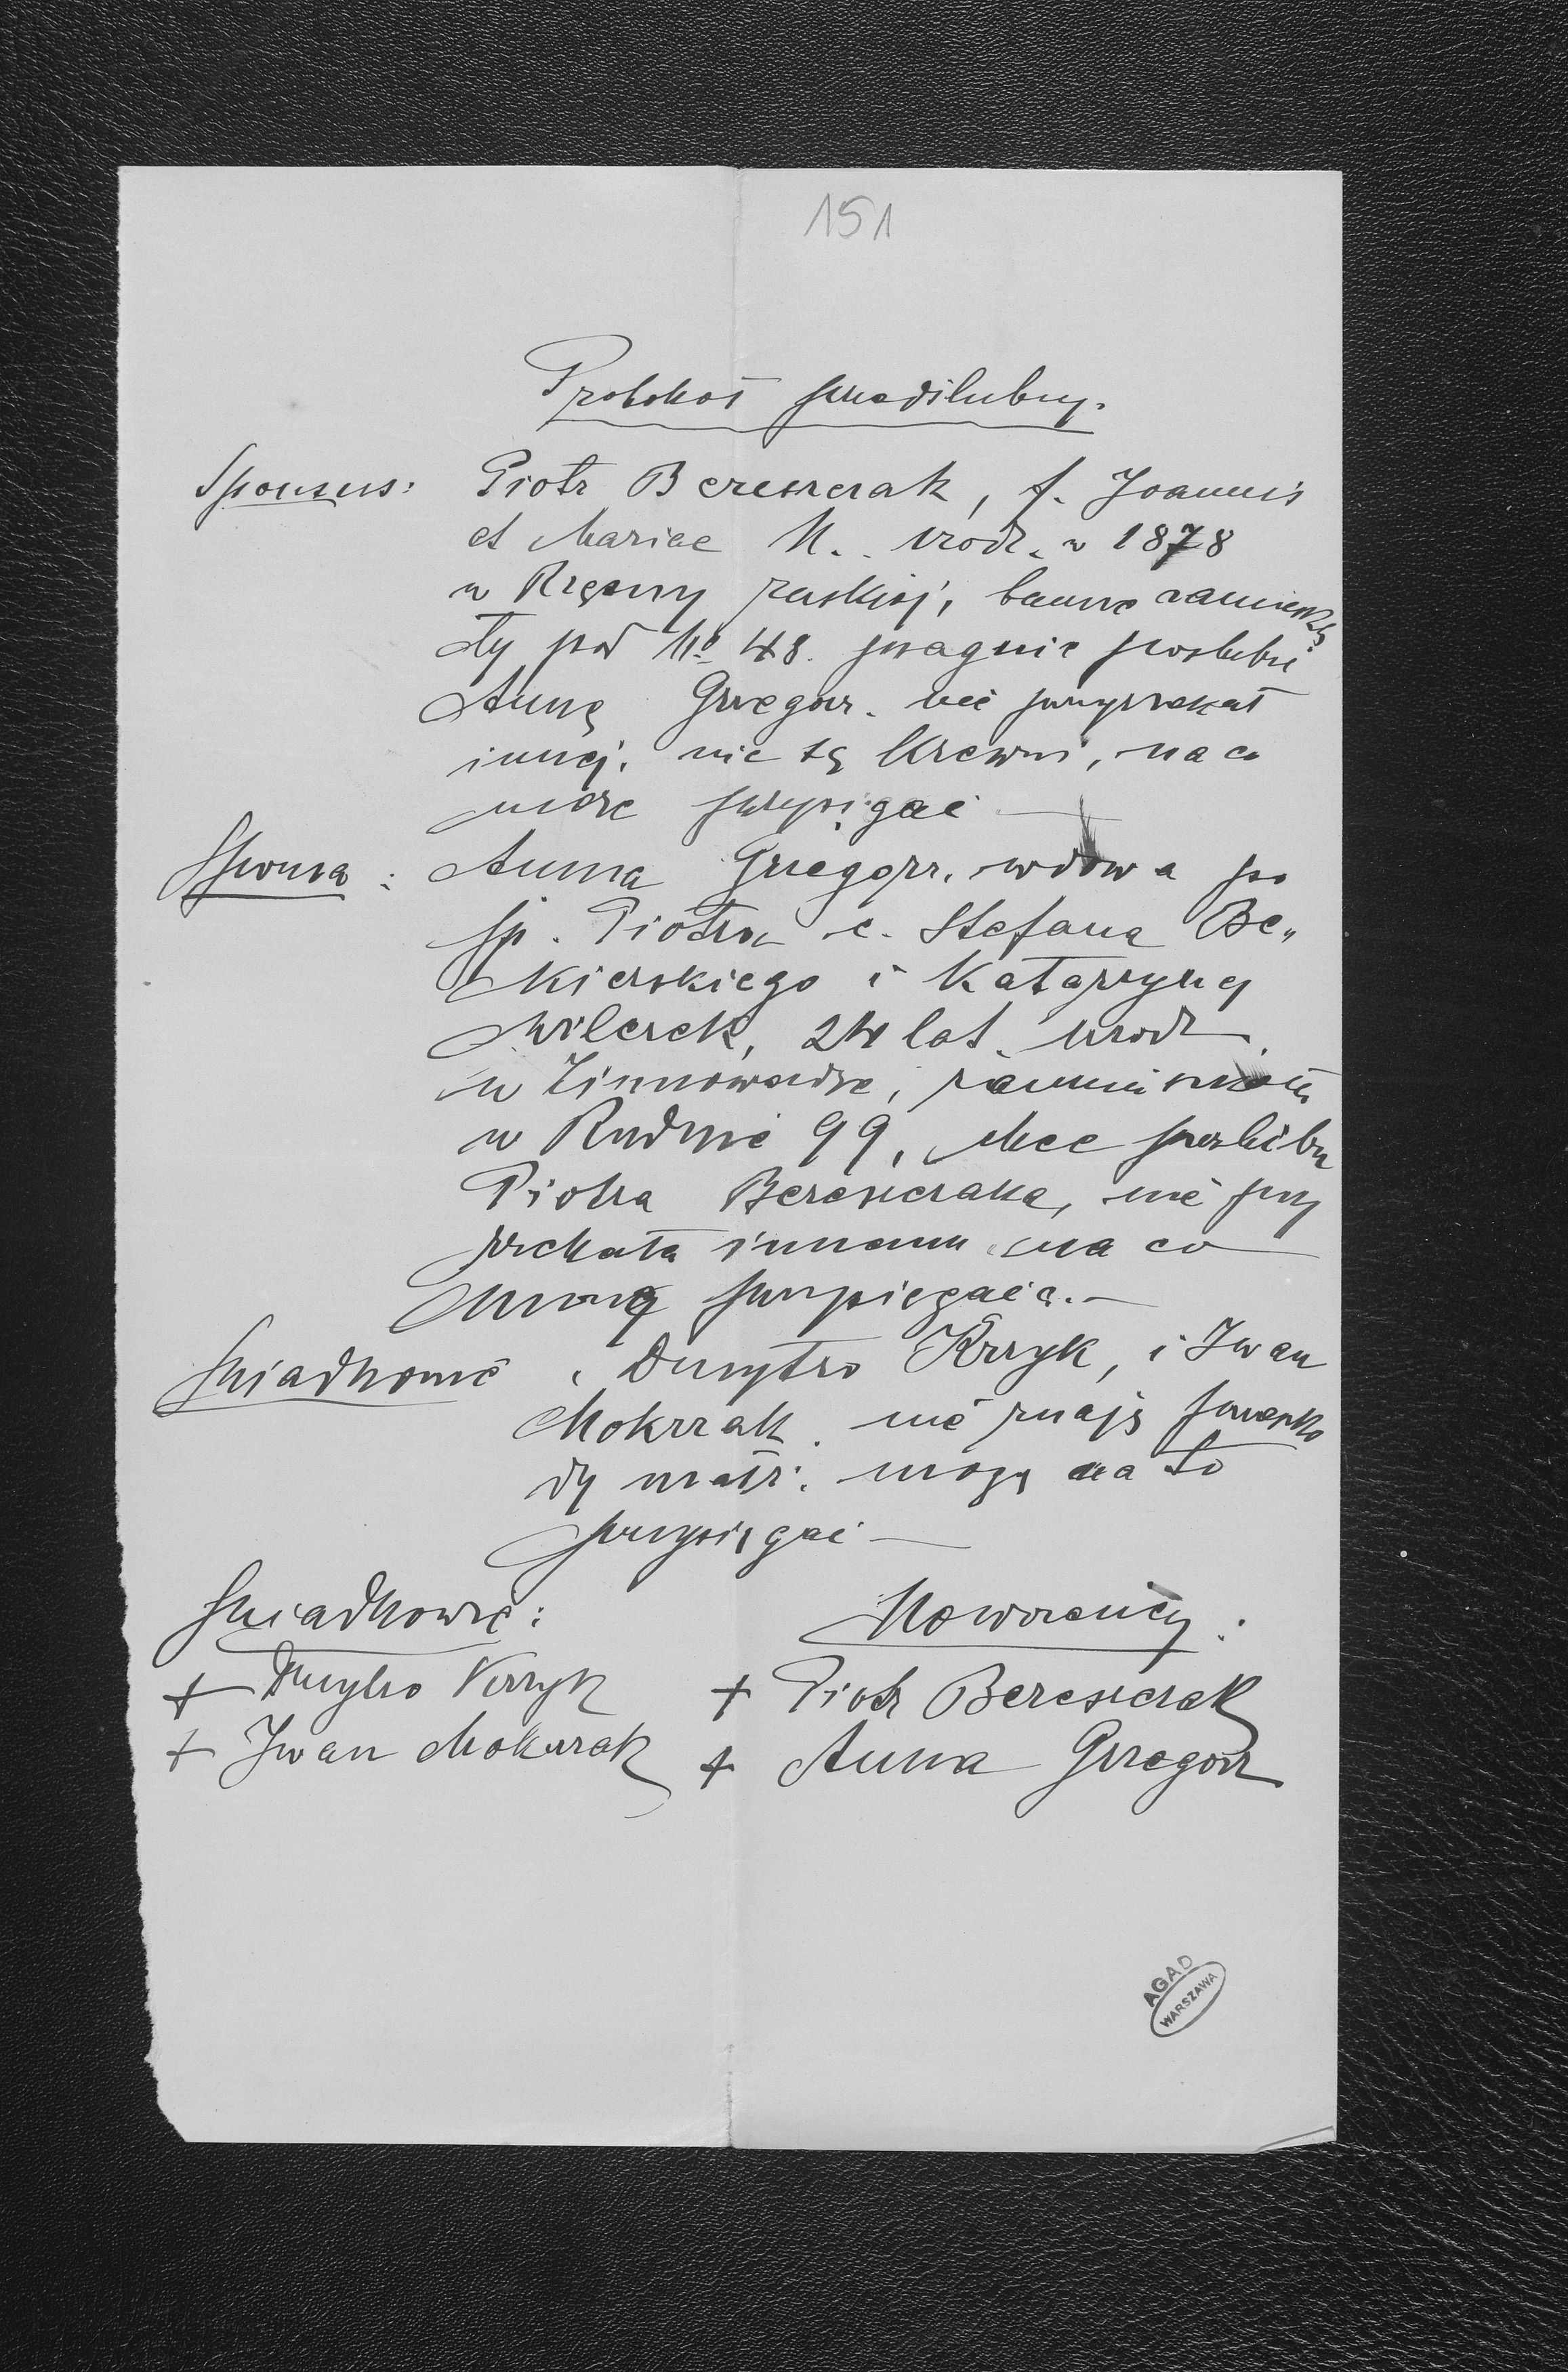 151
Protokoł przedślubny.
Sponsus: Piotr Bereszczak, f. Joannis
et Mariae N.. urodz. w 1878
w Rzęsny ruskiej, tamże zamieszka
ły pod No 48. pragnie poślubić
Annę Grzegorz. nie przyrzekał
innej. nie są krewni, na co
może przysięgać —
Sponsa: Anna Grzegorz. wdowa po
śp. Piotru c. Stefana Be„
kierskiego i Katarzyny
Wilczek, 24 lat. urodz.
w Zimnowodze, zamieszkała
w Rudnie 99, chce poślubić
Piotra Bereszczaka, nie przy
rzekała innemu na co
mogą przysięgać. —
Świadkowie Dmytro Krzyk, i Iwan
Mokrzak. nie znają przeszko
dy matr. mogą na to
przysięgać —
Świadkowie:
+ Dmytro Krzyk
+ Iwan Mokrzak
Nowożeńcy.
+ Piotr Bereszczak
+ Anna Grzegorz
AGAD
WARSZAWA